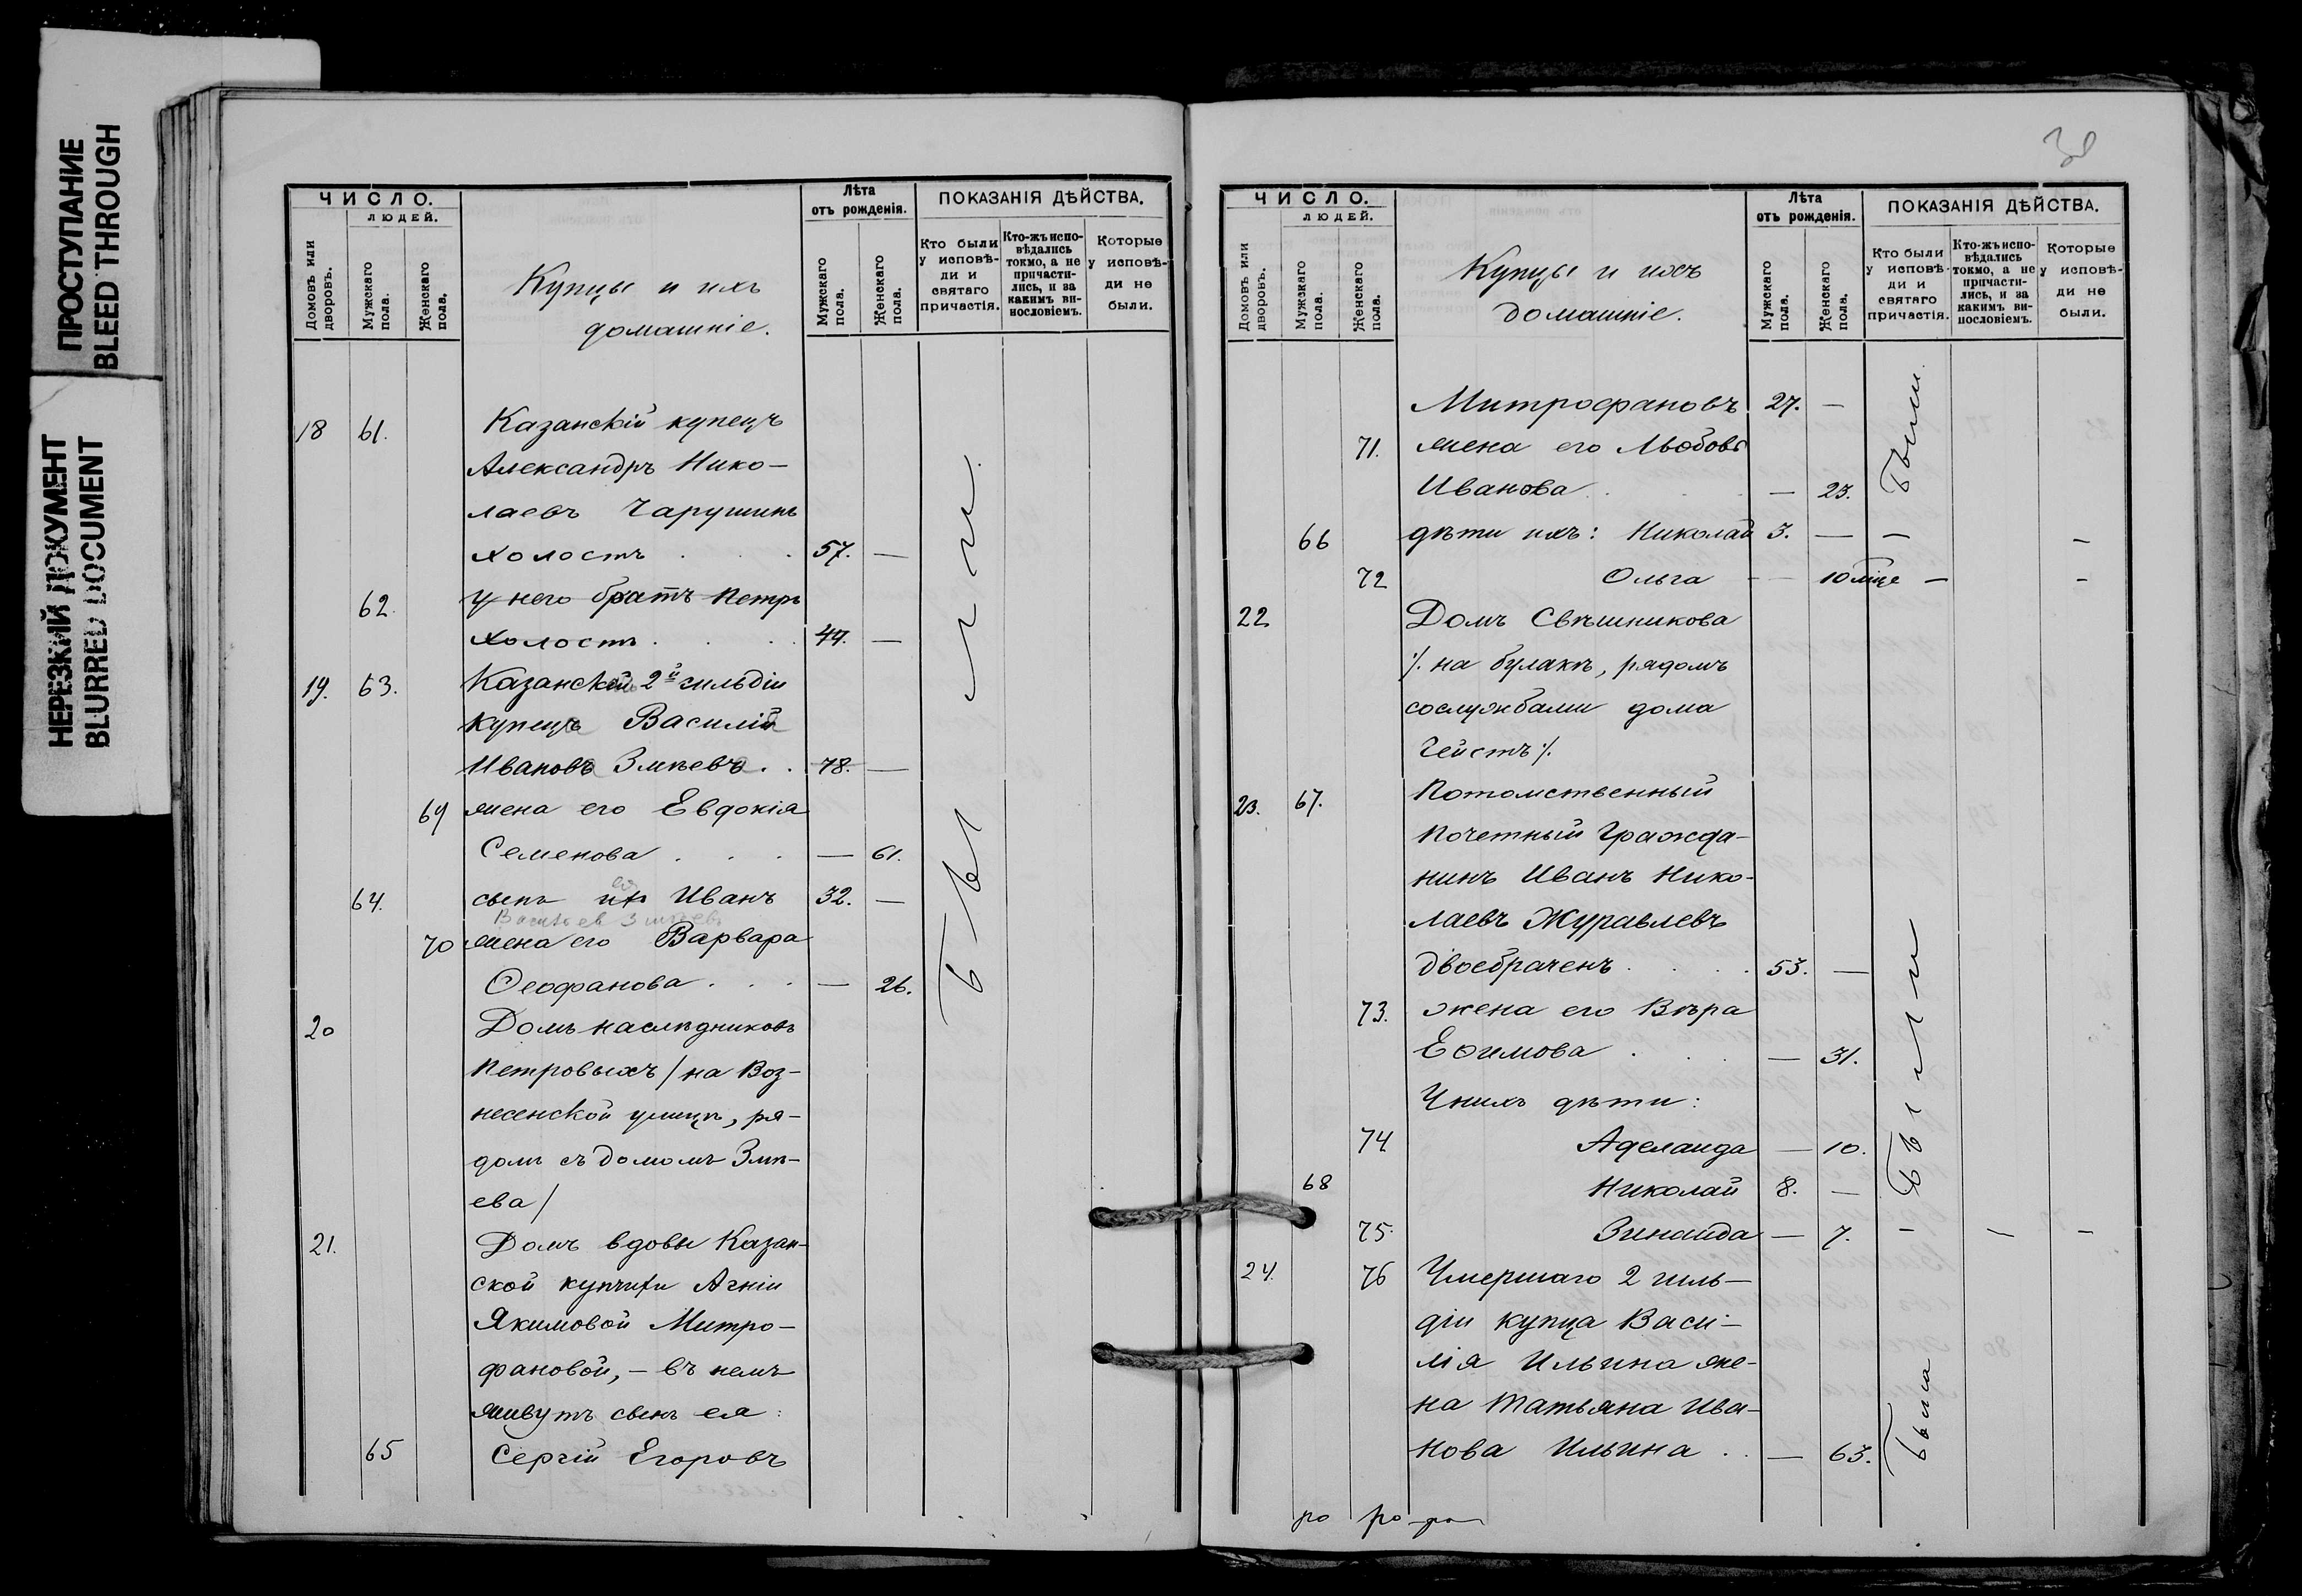 ПРОСТУПАНИЕ
BLEED THROUGH
НЕРЕЗКИЙ ДОКУМЕНТ
BLURRED DOCUMENT
ЧИСЛО.
ЛЮДЕЙ.
Домовъ или дворовъ.
Мужскаго пола.
Женскаго пола.
Купцы и ихъ
домашніе.
Лѣта
отъ рожденія.
Мужскаго пола.
Женскаго пола.
ПОКАЗАНІЯ ДѢЙСТВА.
Кто были у исповѣди и святаго причастія.
Кто-жъ исповѣдались токмо, а не причастились, и за какимъ винословіемъ.
Которые у исповѣди не были.
18 61. Казанскій купецъ
Александръ Нико-
лаевъ Чарушинъ
холостъ . . . 57. —
62. У него братъ Петръ
холостъ . . . 49. —
19. 63. Казанскій 2й гильдіи
купецъ Василій
Ивановъ Змѣевъ . . 78. —
69 жена его Евдокія
Семенова . . . — 61.
64. сынъ ихъ Иванъ 32. —
Васильев Змѣевъ
70 жена его Варвара
Ѳеофанова . . . — 26.
Были
20 Домъ наслѣдниковъ
Петровыхъ / на Воз-
несенской улицѣ, ря-
домъ съ домомъ Змѣ-
ева /
21. Домъ вдовы Казан-
ской купчихи Агніи
Якимовой Митро-
фановой, — въ немъ
живутъ сынъ ея:
65 Сергій Егоровъ
ЧИСЛО.
ЛЮДЕЙ.
Домовъ или дворовъ.
Мужскаго пола.
Женскаго пола.
Купцы и ихъ
домашніе.
Лѣта
отъ рожденія.
Мужскаго пола.
Женскаго пола.
ПОКАЗАНІЯ ДѢЙСТВА.
Кто были у исповѣди и святаго причастія.
Кто-жъ исповѣдались токмо, а не причастились, и за какимъ винословіемъ.
Которые у исповѣди не были.
Митрофановъ 27. —
71. жена его Любовь
Иванова . . . — 23.
Были
66 дѣти ихъ: Николай 3. — — —
72 Ольга — 10 мѣс — —
22 Домъ Свѣшникова
/. на булакѣ, рядомъ
сослужбами дома
Гейстъ /.
23. 67. Потомственный
Почетный Гражда-
нинъ Иванъ Нико-
лаевъ Журавлевъ
двоебраченъ . . . 53. —
73. жена его Вѣра
Ефимова . . . — 31.
У нихъ дѣти:
74 Аделаида — 10.
68 Николай 8. —
Были
75. Зинаида — 7. — — —
24. 76 Умершаго 2 гиль-
діи купца Васи-
лія Ильина же-
на Татьяна Ива-
нова Ильина . . — 63.
Была